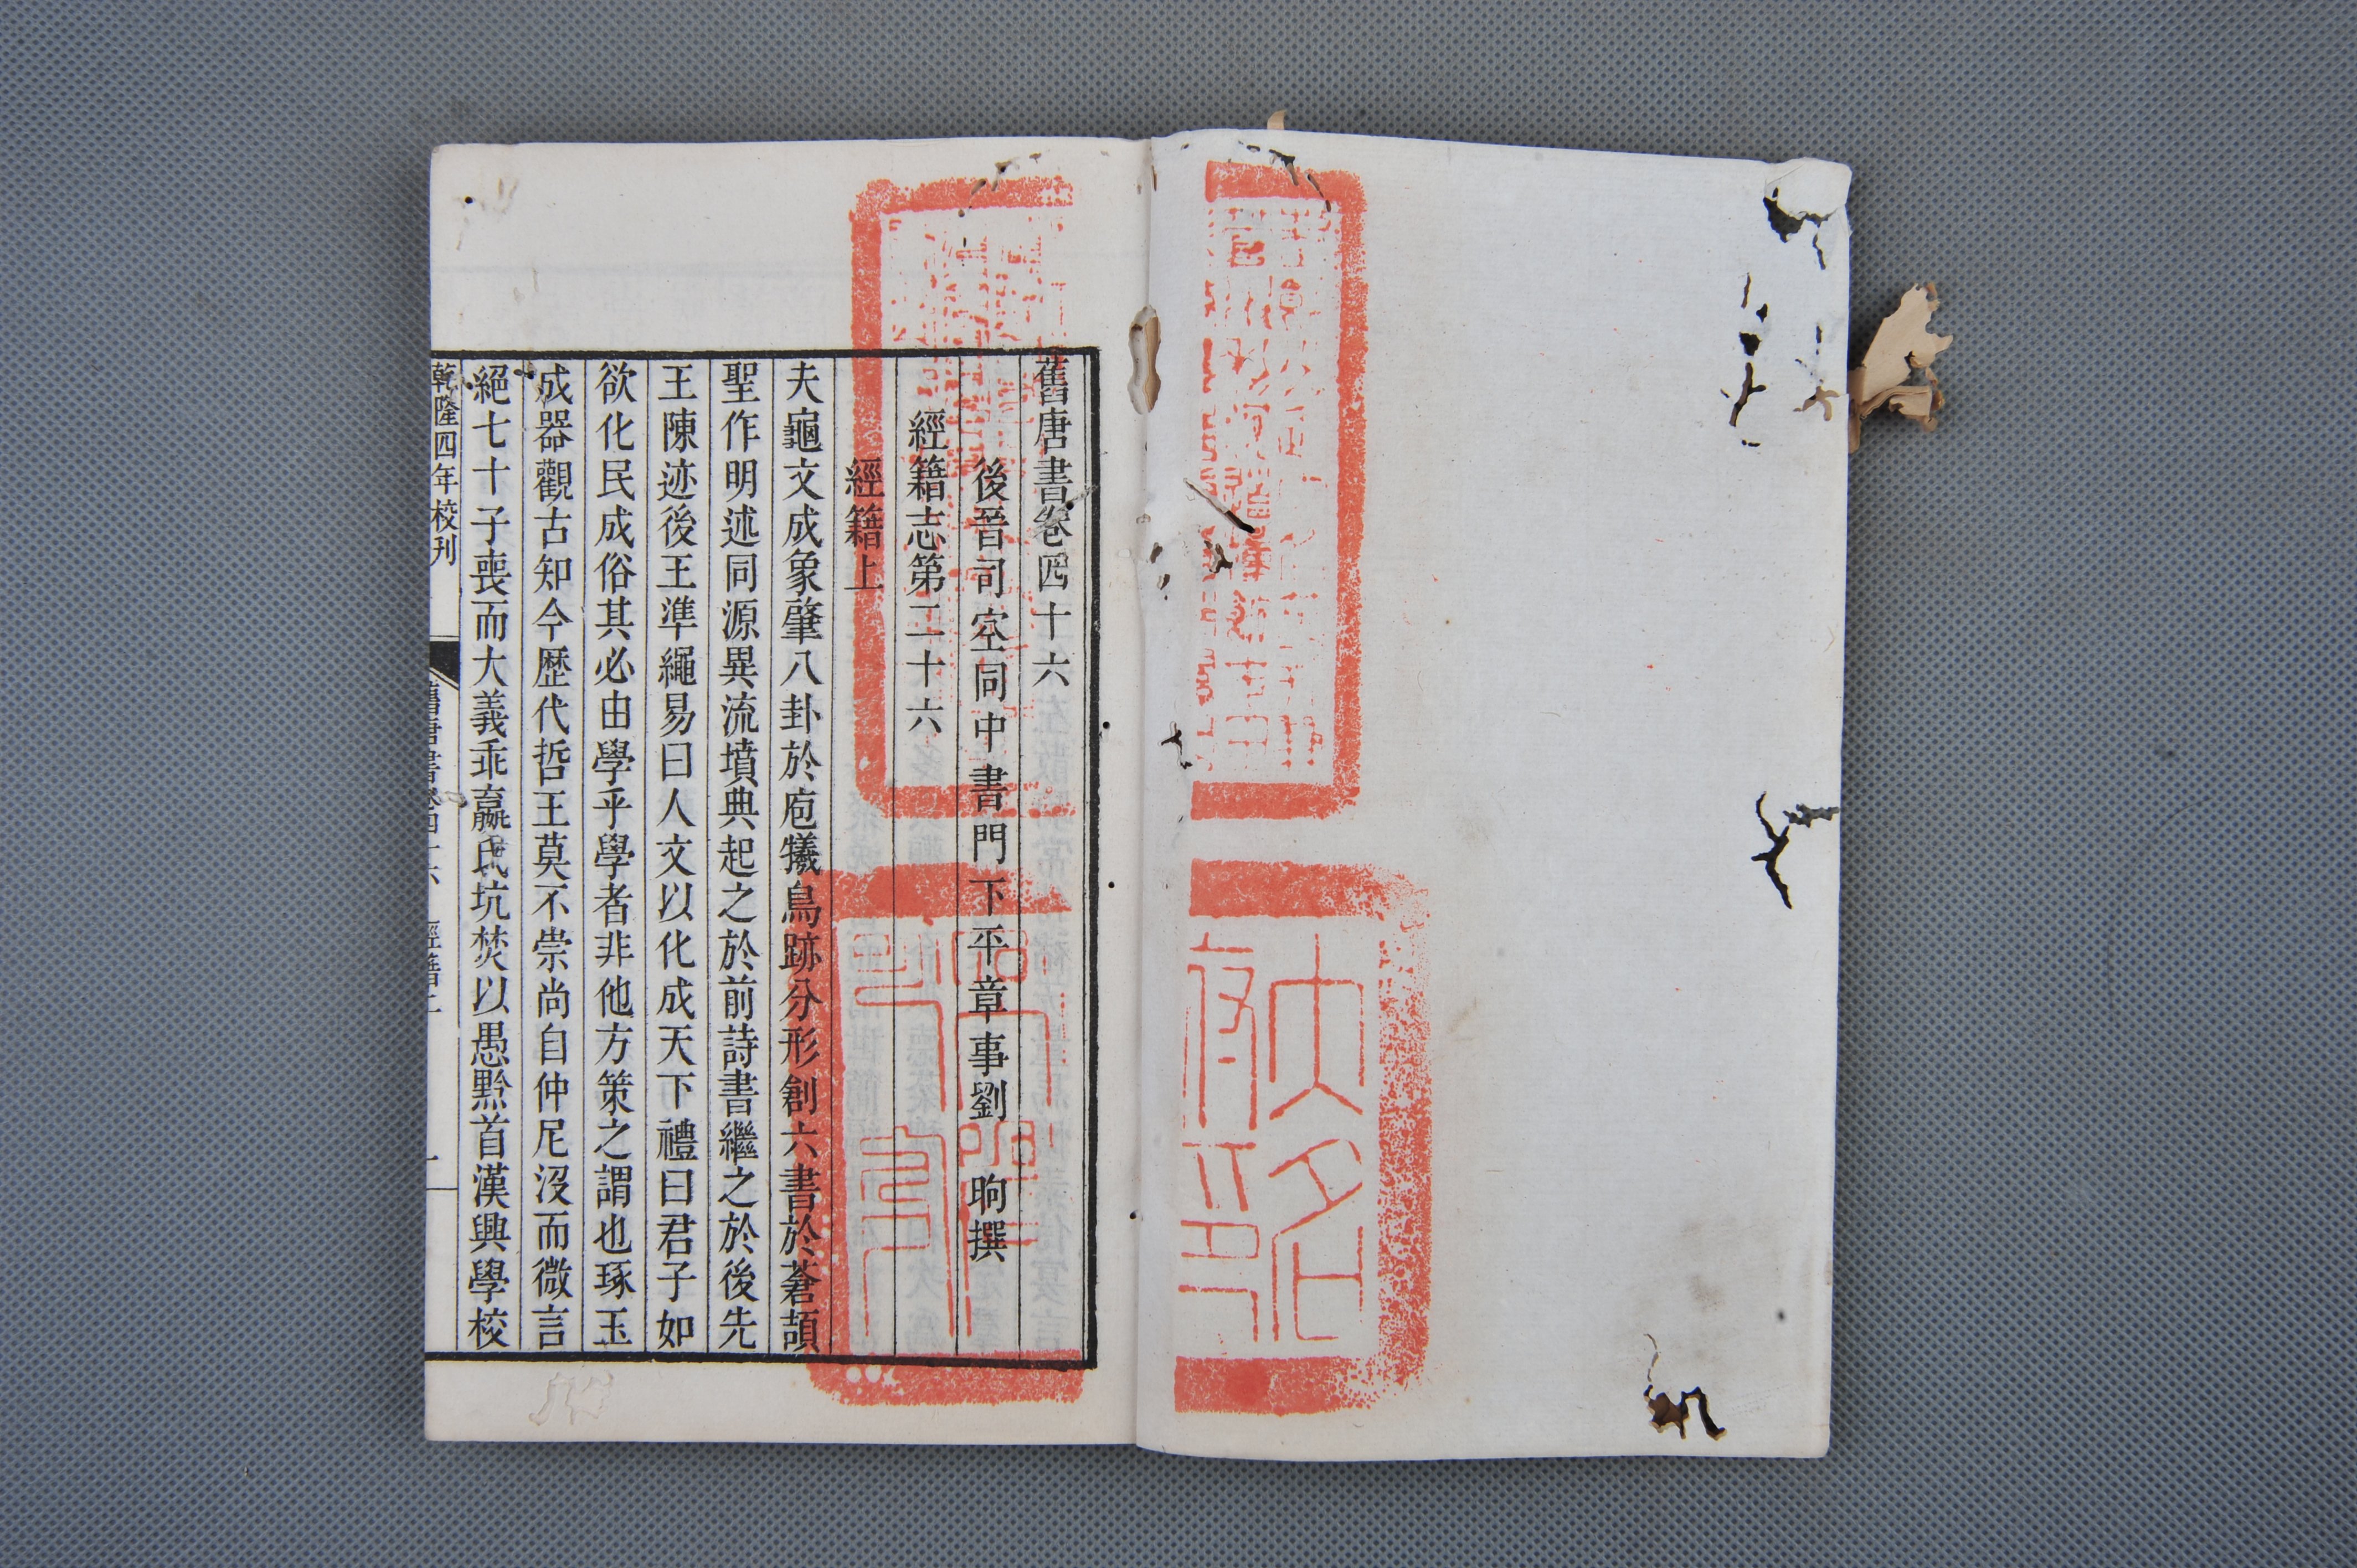 舊唐書卷四十六
後晉司空同中書門下平章事劉昫撰
經籍志第二十六
經籍上
夫龜文成象肇八卦於庖犧鳥跡分形創六書於蒼頡
聖作明述同源異流墳典起之於前詩書繼之於後先
王陳迹後王準繩易曰人文以化成天下禮曰君子如
欲化民成俗其必由學乎學者非他方策之謂也琢玉
成器觀古知今歷代哲王莫不崇尚自仲尼沒而微言
絕七十子喪而大義乖嬴氏坑焚以愚黔首漢興學校
乾隆四年校刊
舊唐書卷四十六 經籍上 一